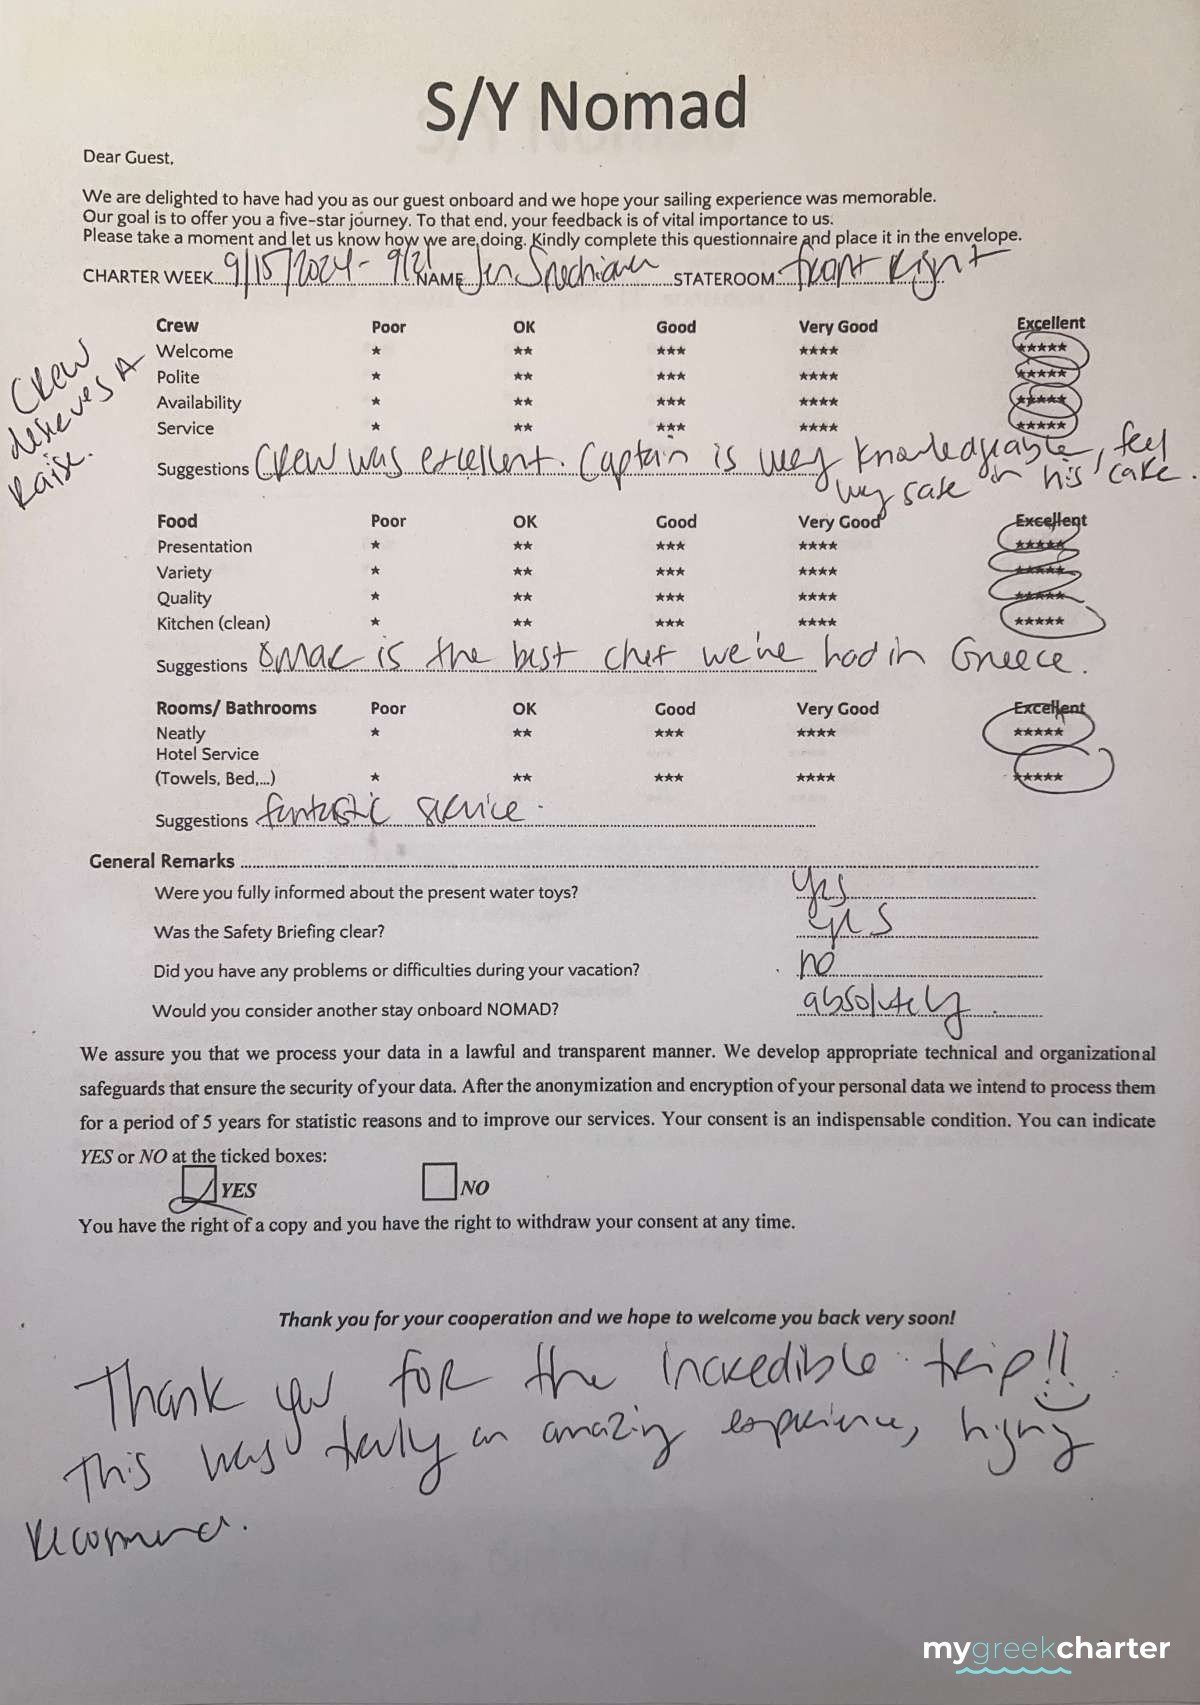 S/Y Nomad
Dear Guest,
We are delighted to have had you as our guest onboard and we hope your sailing experience was memorable.
Our goal is to offer you a five-star journey. To that end, your feedback is of vital importance to us.
Please take a moment and let us know how we are doing. Kindly complete this questionnaire and place it in the envelope.
CHARTER WEEK 9/15/2024 - 9/21 NAME Jen STATEROOM front Right
Crew Poor OK Good Very Good Excellent
Welcome ★ ★★ ★★★ ★★★★ ★★★★★
Polite ★ ★★ ★★★ ★★★★ ★★★★★
Availability ★ ★★ ★★★ ★★★★ ★★★★★
Service ★ ★★ ★★★ ★★★★ ★★★★★
Crew
deserves A
Raise.
Suggestions Crew was excellent. Captain is very knowledgeable, feel
very safe in his care.
Food Poor OK Good Very Good Excellent
Presentation ★ ★★ ★★★ ★★★★ ★★★★★
Variety ★ ★★ ★★★ ★★★★ ★★★★★
Quality ★ ★★ ★★★ ★★★★ ★★★★★
Kitchen (clean) ★ ★★ ★★★ ★★★★ ★★★★★
Suggestions Omac is the best chef we've had in Greece.
Rooms/ Bathrooms Poor OK Good Very Good Excellent
Neatly ★ ★★ ★★★ ★★★★ ★★★★★
Hotel Service
(Towels, Bed,...) ★ ★★ ★★★ ★★★★ ★★★★★
Suggestions fantastic service.
General Remarks
Were you fully informed about the present water toys? yes
Was the Safety Briefing clear? yes
Did you have any problems or difficulties during your vacation? no
Would you consider another stay onboard NOMAD? absolutely.
We assure you that we process your data in a lawful and transparent manner. We develop appropriate technical and organizational
safeguards that ensure the security of your data. After the anonymization and encryption of your personal data we intend to process them
for a period of 5 years for statistic reasons and to improve our services. Your consent is an indispensable condition. You can indicate
YES or NO at the ticked boxes:
YES NO
You have the right of a copy and you have the right to withdraw your consent at any time.
Thank you for your cooperation and we hope to welcome you back very soon!
Thank you for the incredible trip!!
This was truly an amazing experience, highly
recommend.
mygreekcharter